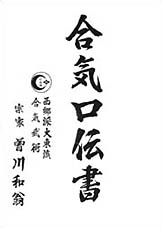 合気口伝書
西郷派大東流
合気武術
宗家 曽川和翁